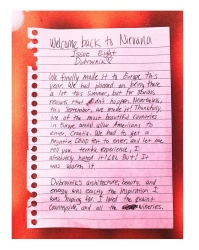 Welcome back to Nirvana
Issue Eight
Dubrovnik
We finally made it to Europe this
year. We had planned on being there
a lot this summer, but for
reasons that didn't happen. Nonetheless,
this September, we made it! Thankfully,
one of the most beautiful countries
in Europe would allow Americans to
enter, Croatia. We had to get a
negative COVID test to enter, and let me
tell you, terrible experience, I
absolutely hated it! LOL. BUT! It
was worth it.
Dubrovnik's architecture, beauty, and
energy was exactly the inspiration I
was hoping for. I loved the quaint
countryside, and all the wineries.